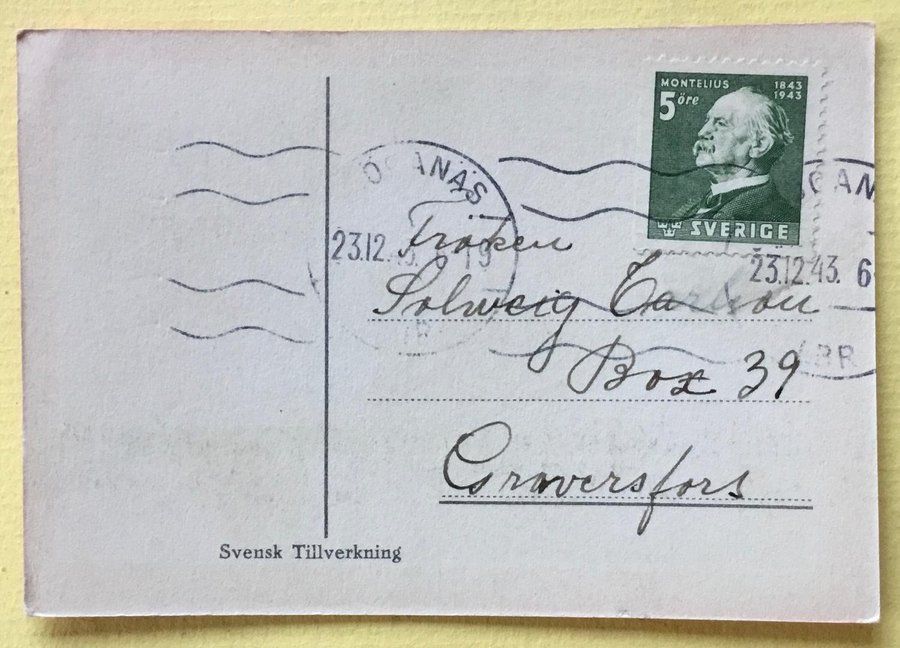 MONTELIUS 1843
1943
5 öre
SVERIGE
23.12.
19
23.12.43. 6
BR
Fröken
Solweig Carlson
Box 39
Graversfors
Svensk Tillverkning